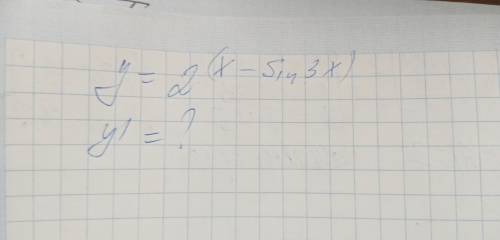 y = 2^(x - sin 3x)
y' = ?